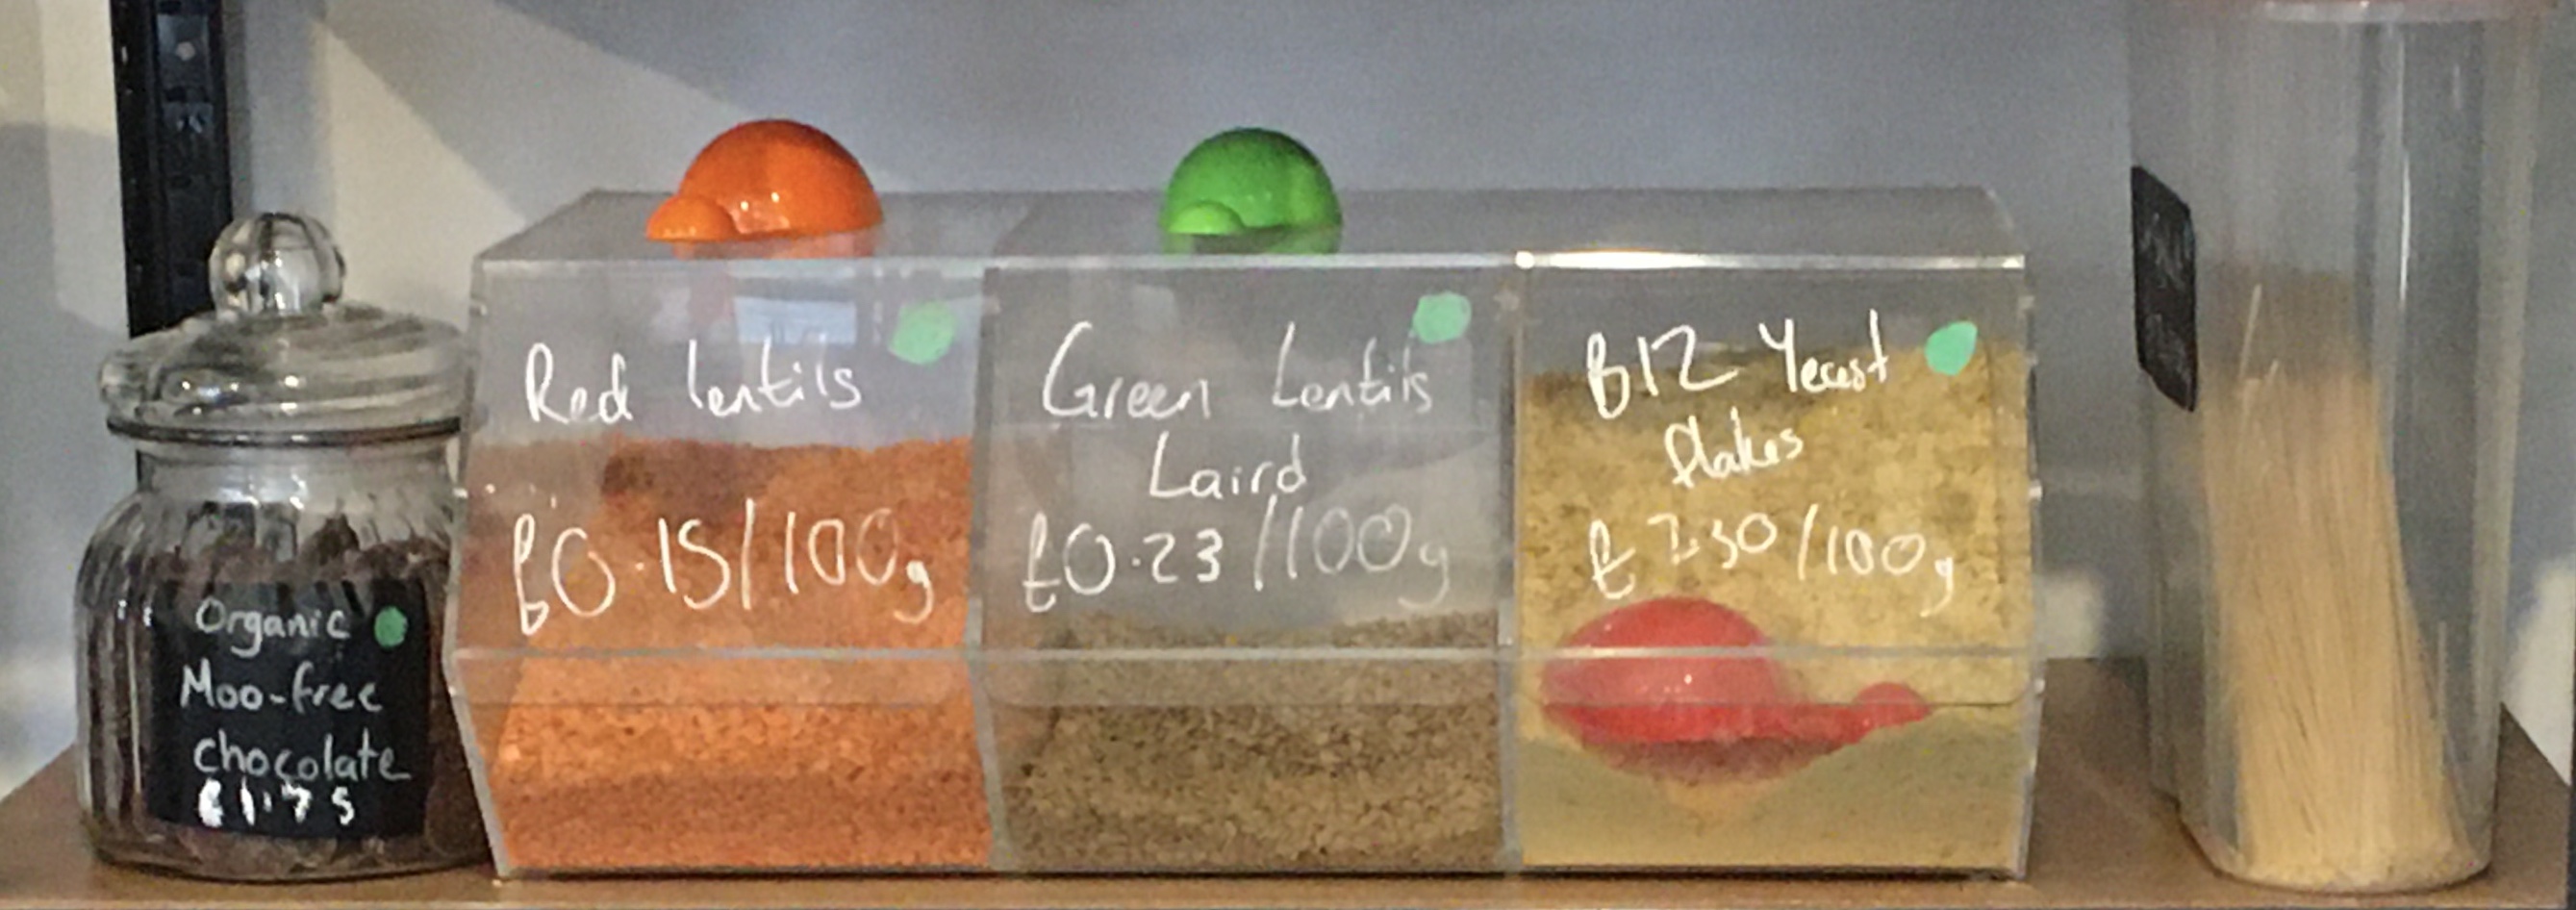 Organic
Moo-free
chocolate
£1.75
Red lentils
£0.15/100g
Green Lentils
Laird
£0.23/100g
B12 Yeast
flakes
£230/100g